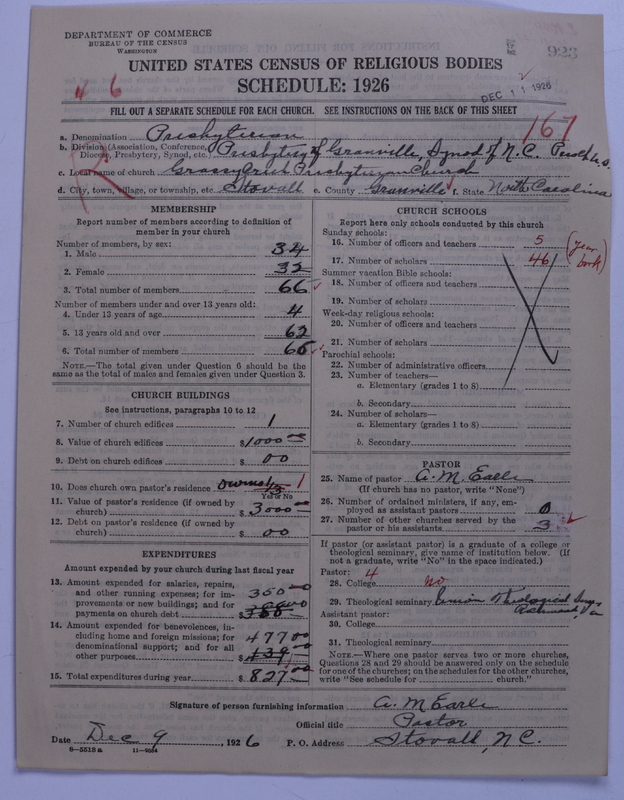 DEPARTMENT OF COMMERCE
BUREAU OF THE CENSUS
WASHINGTON
923
UNITED STATES CENSUS OF RELIGIOUS BODIES
SCHEDULE: 1926
DEC 11 1926
FILL OUT A SEPARATE SCHEDULE FOR EACH CHURCH. SEE INSTRUCTIONS ON THE BACK OF THIS SHEET
167
a. Denomination Presbyterian
b. Division (Association, Conference, Diocese, Presbytery, Synod, etc.) Presbytery of Granville, Synod of N.C.
c. Local name of church Grassy Creek Presbyterian Church
d. City, town, village, or township, etc. Stovall e. County Granville f. State North Carolina
MEMBERSHIP
Report number of members according to definition of
member in your church
Number of members, by sex:
1. Male 34
2. Female 32
3. Total number of members 66
Number of members under and over 13 years old:
4. Under 13 years of age 4
5. 13 years old and over 62
6. Total number of members 66
NOTE.—The total given under Question 6 should be
same as the total of males and females given under Question 3.
CHURCH BUILDINGS
See instructions, paragraphs 10 to 12
7. Number of church edifices 1
8. Value of church edifices $1000
9. Debt on church edifices $ 00
10. Does church own pastor's residence owns 1/3 1
Yes or No
11. Value of pastor's residence (if owned by
church) $ 3000
12. Debt on pastor's residence (if owned by
church) $ 00
EXPENDITURES
Amount expended by your church during last fiscal year
13. Amount expended for salaries, repairs,
and other running expenses; for im-
provements or new buildings; and for
payments on church debt $ 350
14. Amount expended for benevolences, in-
cluding home and foreign missions; for
denominational support; and for all
other purposes $ 477 00
15. Total expenditures during year $ 827 00
CHURCH SCHOOLS
Report here only schools conducted by this church
Sunday schools:
16. Number of officers and teachers 5
17. Number of scholars 46
(year book)
Summer vacation Bible schools:
18. Number of officers and teachers
19. Number of scholars
Week-day religious schools:
20. Number of officers and teachers
21. Number of scholars
Parochial schools:
22. Number of administrative officers
23. Number of teachers—
a. Elementary (grades 1 to 8)
b. Secondary
24. Number of scholars—
a. Elementary (grades 1 to 8)
b. Secondary
PASTOR
25. Name of pastor A. M. Earle
(If church has no pastor, write "None")
26. Number of ordained ministers, if any, em-
ployed as assistant pastors 0
27. Number of other churches served by the
pastor or his assistants 3
If pastor (or assistant pastor) is a graduate of a college or
theological seminary, give name of institution below. (If
not a graduate, write "No" in the space indicated.)
Pastor: 4
28. College no
29. Theological seminary Union Theological Richmond, Va
Assistant pastor:
30. College
31. Theological seminary
NOTE.—Where one pastor serves two or more churches,
Questions 28 and 29 should be answered only on the schedule
for one of the churches; on the schedules for the other churches,
write "See schedule for church."
Signature of person furnishing information A. M Earle
Official title Pastor
Date Dec 9, 1926 P. O. Address Stovall, N.C.